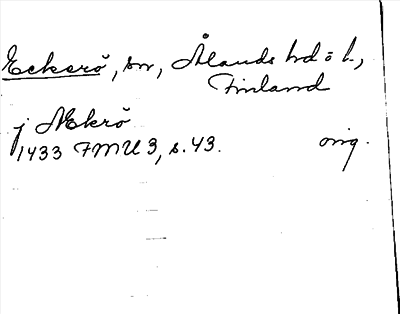 Eckerö, sn, Ålands hd o l.,
Finland
j Ækrö
1433 FMU 3, s. 43. orig.